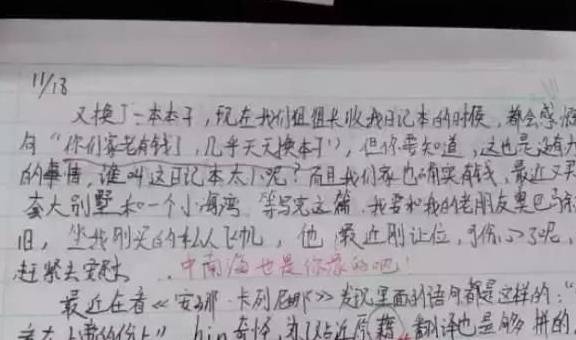 11/18
又换了一本本子，现在我们组组长收我日记本的时候，都会感慨
句“你们家老有钱了，几乎天天换本了”，但你要知道，这也是没有
的事情，谁叫这日记本太小呢？而且我们家也确实有钱，最近又买
套大别墅和一个小海湾，等写完这篇，我要和我的老朋友奥巴马
旧，坐我刚买的私人飞机，他最近刚让位，呢，
赶紧去安慰
中南海也是你家的吧！
最近在看《安娜·卡列尼娜》发现里面的语句都是这样的：“
bin奇怪，原籍，翻译也是够拼的，